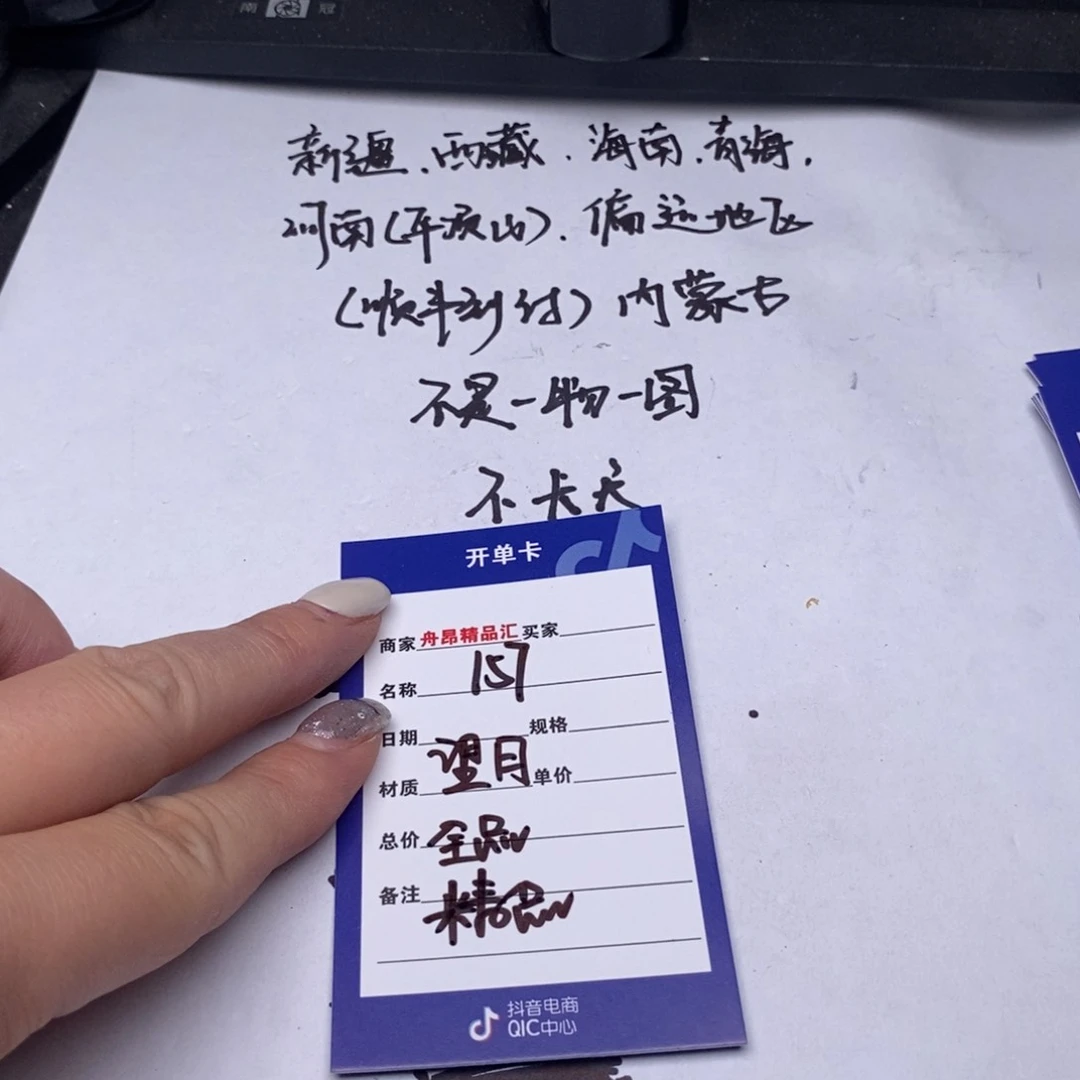 南 冠
新疆、西藏、海南、青海,
河南(平顶山)、偏远地区
(顺丰到付)内蒙古
不是一物一图
不卡天
开单卡
商家 舟昂精品汇 买家
名称 157
日期 规格
材质 望月 单价
总价 全品
备注 精品
抖音电商
QIC中心